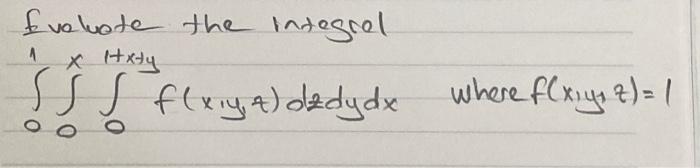 Evaluate the integral
1 x 1+x+y
∫ ∫ ∫ f(x,y,z) dzdydx where f(x,y,z)=1
0 0 0